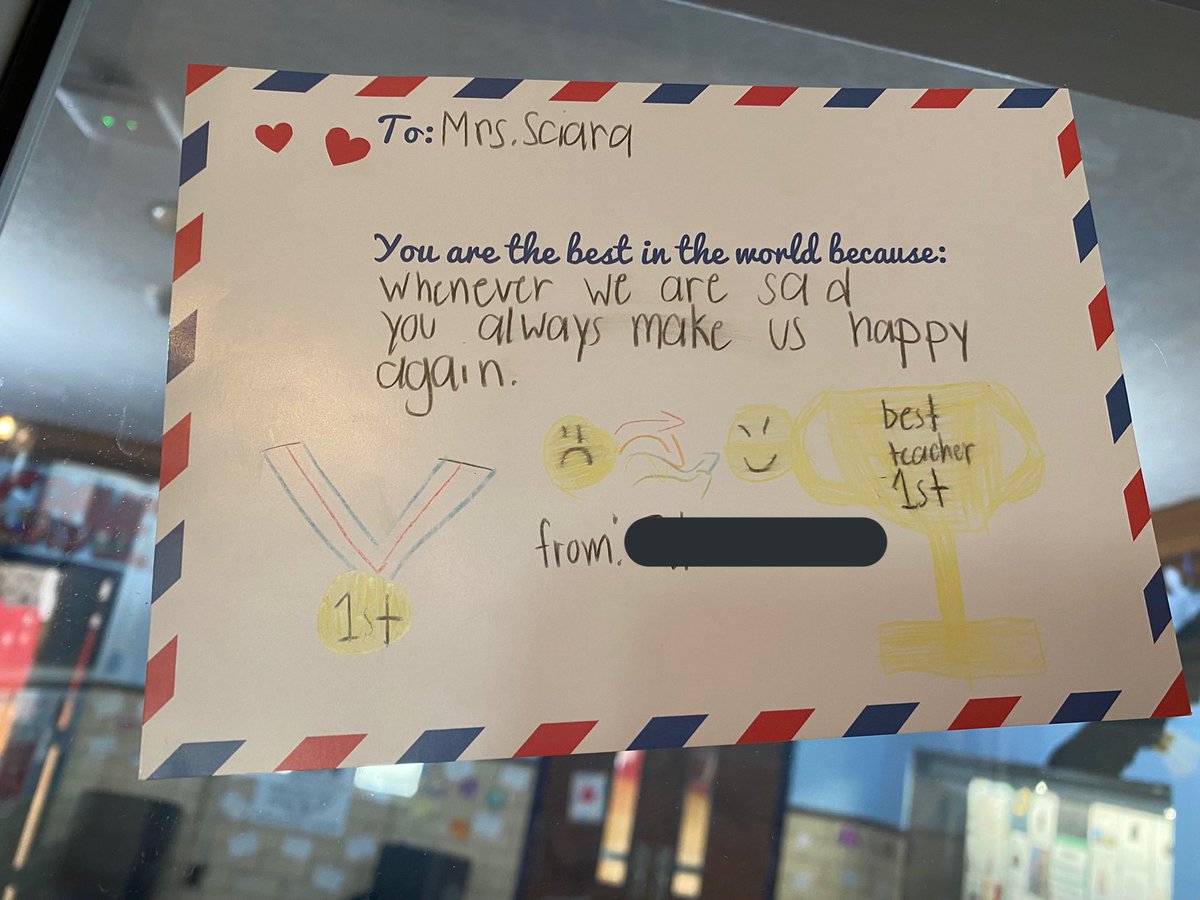 To: Mrs. Sciara
You are the best in the world because:
whenever we are sad
you always make us happy
again.
best
teacher
1st
from:
1st